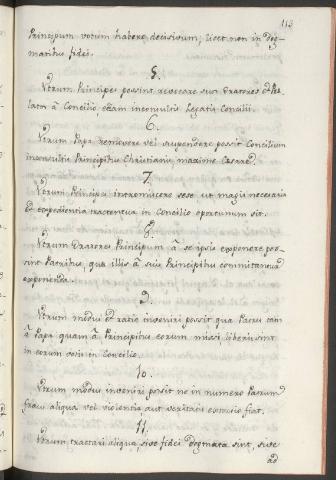 113
Principum votum habere decisivum, licet non in dog-
matibus fidei.
5.
Vtrum Principes possint revocare suos Oratores et Prę-
latos à Concilio etiam inconsultis Legatis Concilii.
6.
Vtrum Papa removere vel suspendere possit Concilium
inconsultis Principibus Christianis, maxime Cesare.
7.
Vtrum Principes intromittere sese ut magis necessaria
et expedientia tractentur in Concilio oportunum sit.
8.
Vtrum Oratores Principum à se ipsis exponere pos-
sint Patribus, quę illis à suis Principibus committantur
exponenda.
9.
Vtrum modus et ratio inveniri possit qua Patres tam
à Papa quam à Principibus eorum missi liberi sint
in eorum votis in Concilio.
10.
Vtrum modus inveniri possit ne in numero Patrum
fraus aliqua vel violentia, aut veritatis extorsio fiat.
11.
Vtrum tractari aliqua, sive fidei dogmata sint, sive
ad